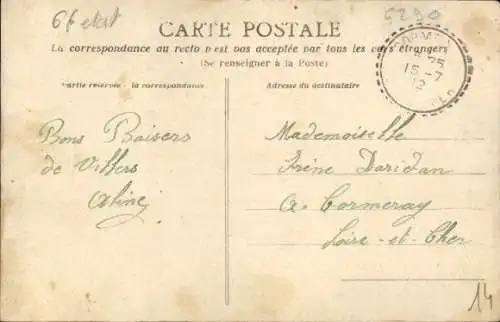 5290
CARTE POSTALE
La correspondance au recto n'est pas acceptée par tous les pays étrangers
(Se renseigner à la Poste)
Partie réservée à la correspondance
Adresse du destinataire
15-7
12
Bons Baisers
de Villers
Aline
Mademoiselle
Irène Daridan
à Cormeray
Loir-et-Cher
14